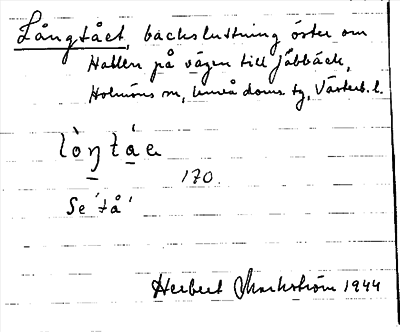 Långtået, backsluttning öster om
Hallen på vägen till Jåbbäck,
Holmöns sn, Umeå doms. tg, Västerb. l.
lòŋtáe
170.
Se 'tå'
Herbert Markström 1944